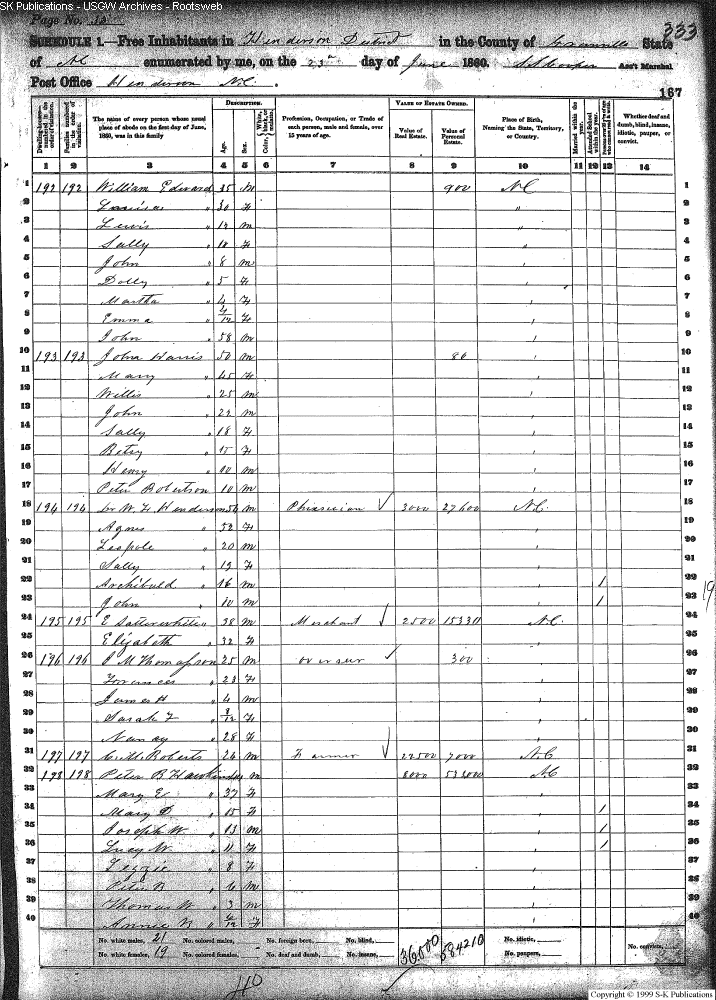 SK Publications - USGW Archives - Rootsweb
Page No. 333
SCHEDULE 1.—Free Inhabitants in Henderson District in the County of Granville State
of NC enumerated by me, on the 23d day of June 1860. Ass't Marshal
Post Office Henderson NC. 167
Dwelling-houses—numbered in the order of visitation. Families numbered in the order of visitation. The name of every person whose usual place of abode on the first day of June, 1860, was in this family DESCRIPTION. Age. Sex. Color, White, black, or mulatto. Profession, Occupation, or Trade of each person, male and female, over 15 years of age. VALUE OF ESTATE OWNED. Value of Real Estate. Value of Personal Estate. Place of Birth, Naming the State, Territory, or Country. Married within the year. Attended School within the year. Whether deaf and dumb, blind, insane, idiotic, pauper, or convict.
1 2 3 4 5 6 7 8 9 10 11 12 13 14
1 192 192 William Edward 35 M 900 NC 1
2 Louisa " 30 F " 2
3 Lewis " 12 M " 3
4 Sally " 10 F 4
5 John " 8 M 5
6 Dolly " 5 F 6
7 Martha " 4 F 7
8 Emma " F 8
9 John " 58 M 9
10 193 193 John Harris 50 M 80 10
11 Mary " 45 F 11
12 Willis " 25 M 12
13 John " 22 M 13
14 Sally " 18 F 14
15 Betsy " 15 F 15
16 Henry " 10 M 16
17 Peter Robertson 10 M 17
18 194 194 Dr W. F. Henderson 56 M Phisician 3000 27600 NC. 18
19 Agnes " 52 F 19
20 Leopole " 20 M 20
21 Sally " 19 F 21
22 Archibald " 16 M 1 22
23 John " 10 M 1 23
24 195 195 E Satterwhite 38 M Merchant 2500 NC. 24
25 Elizabeth " 32 F 25
26 196 196 P M Thomasson 25 M 300 26
27 " 23 F 27
28 James H " 4 M 28
29 Sarah F " 8/12 F 29
30 Nancy " 28 F 30
31 197 197 Roberts 26 M Farmer 22500 7000 NC 31
32 198 198 Peter B Hawkins M 8000 NC 32
33 Mary E " 37 F 33
34 Mary D " 15 F 1 34
35 Joseph W " 13 M 1 35
36 Lucy N " 11 F 1 36
37 " 8 F 37
38 Peter B " 6 M 38
39 Thomas W " 3 M 39
40 Annie B " F 40
No. white males, 21 No. colored males, No. foreign born, No. blind, 36000 584210 No. idiotic, No. convicts,
No. white females, 19 No. colored females, No. deaf and dumb, No. insane, No. paupers,
40
Copyright © 1999 S-K Publications